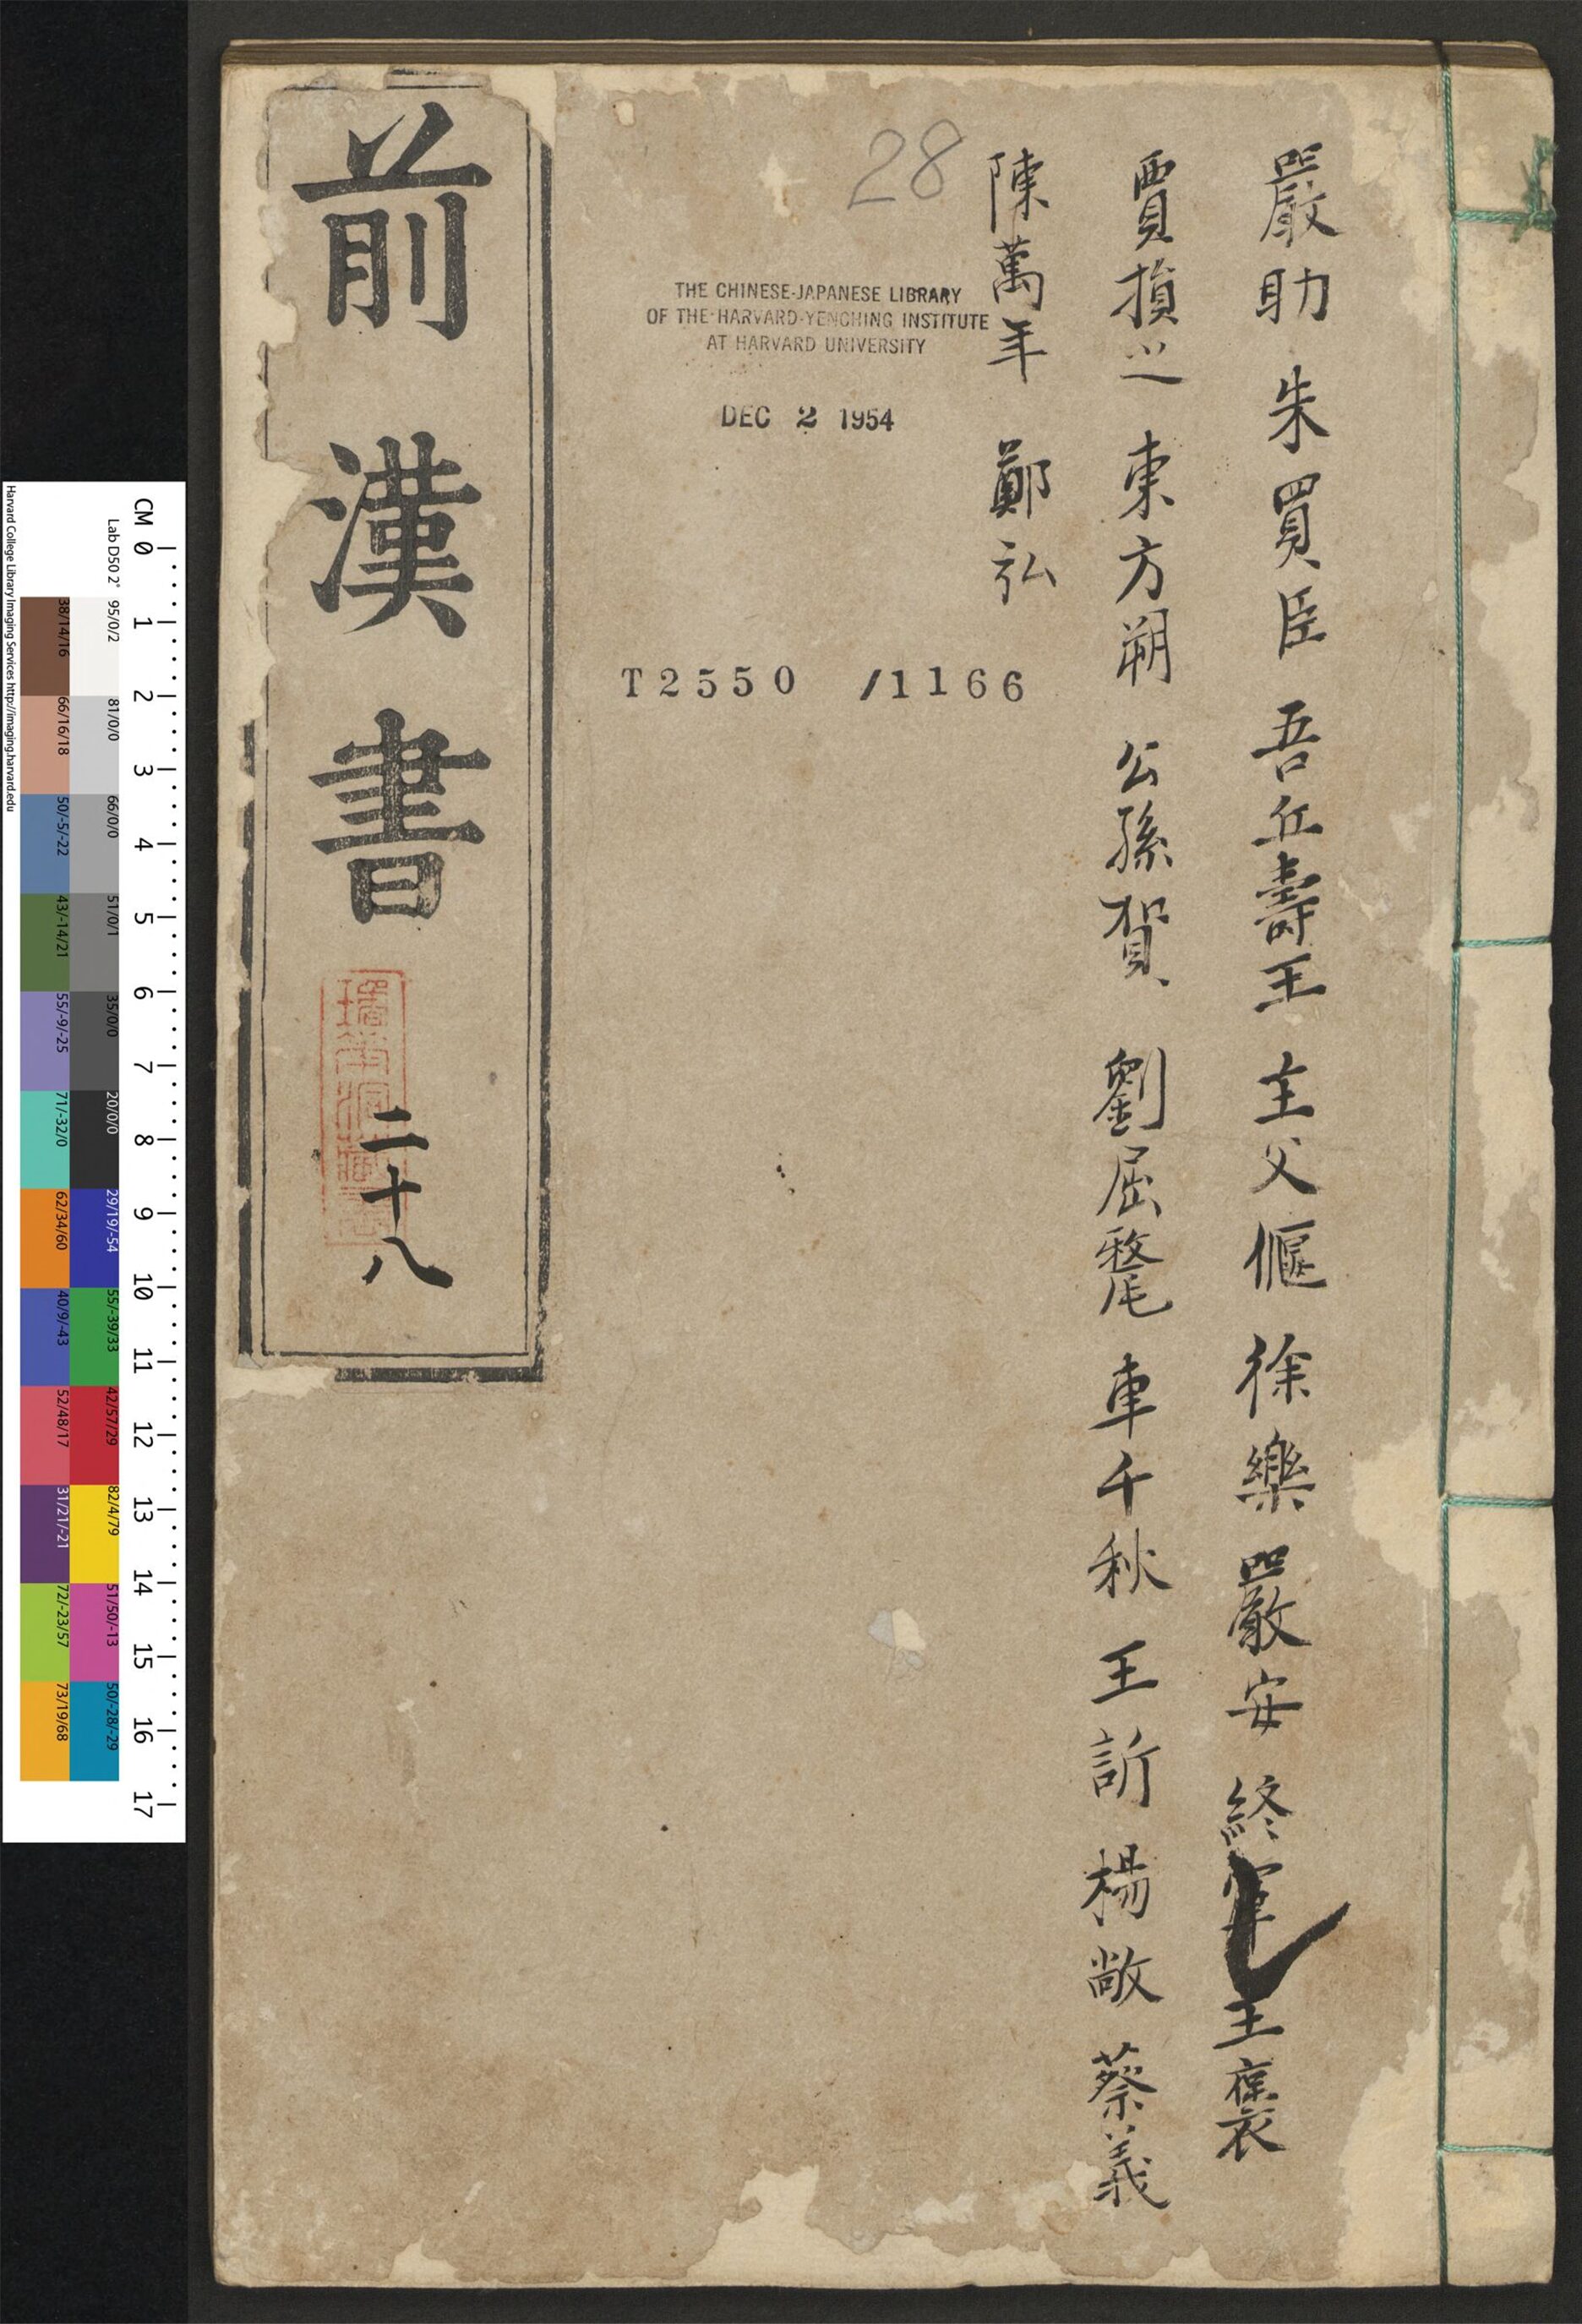 嚴助 朱買臣 吾丘壽王 主父偃 徐樂 嚴安 終軍 王褒
賈損之 東方朔 公孫賀 劉屈氂 車千秋 王訢 楊敞 蔡義
陳萬年 鄭弘
28
THE CHINESE-JAPANESE LIBRARY
OF THE HARVARD-YENCHING INSTITUTE
AT HARVARD UNIVERSITY
DEC 2 1954
T2550 /1166
前漢書
二十八
CM 0 1 2 3 4 5 6 7 8 9 10 11 12 13 14 15 16 17
Lab D50 2°
95/0/2
81/0/0
66/0/0
51/0/1
35/0/0
20/0/0
29/19/-54
55/-39/33
42/57/29
82/4/79
51/50/-13
50/-28/-29
38/14/16
66/16/18
50/-5/-22
43/-14/21
55/-9/-25
71/-32/0
62/34/60
40/9/-43
52/48/17
31/21/-21
72/-23/57
73/19/68
Harvard College Library Imaging Services http://imaging.harvard.edu